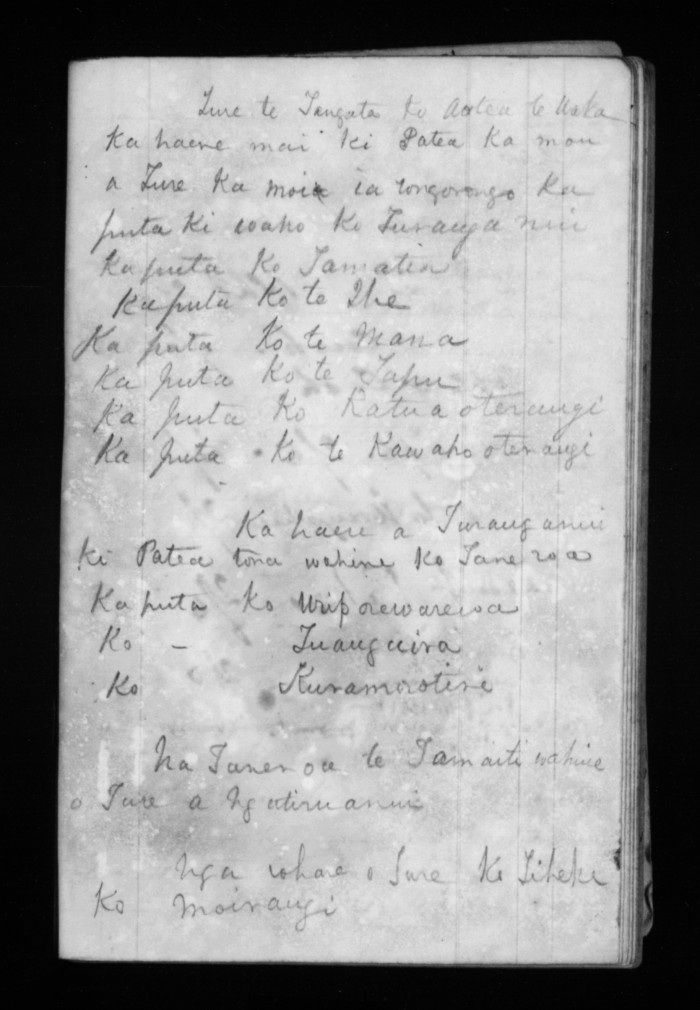 Ture te Tangata ko Aotea te Waka
Ka haere mai ki Patea Ka mou
a Ture Ka moia ia rongorongo Ka
puta ki waho ko Turanga nui
Ka puta Ko Tamatea
Ka puta Ko te Ihe
Ka puta Ko te Mana
Ka puta Ko te Tapu
Ka puta Ko Katua o terangi
Ka puta Ko te Kawaho oterangi
Ka haere a Turanganui
ki Patea tona wahine ko Tane roa
Ka puta ko
Ko -
Ko Kuramorotini
Na Taneroa te Tamaiti wahine
o Ture a Ngatiruanui
Nga whare o Ture Ko Tiheke
Ko Moirangi